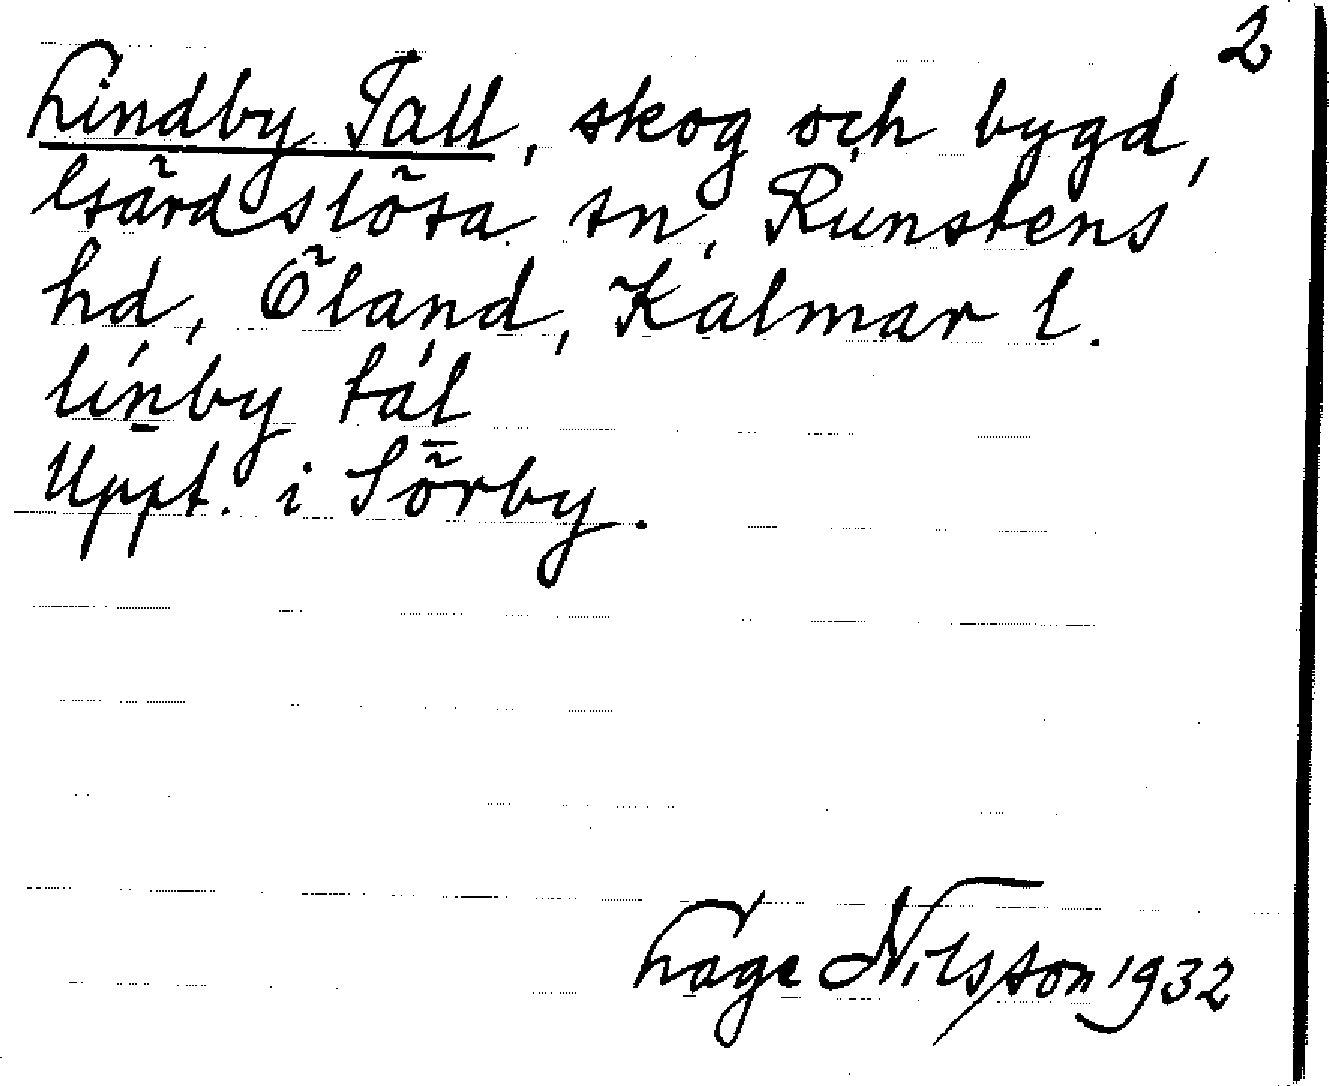 2
Lindby Tall, skog och bygd,
Gärdslösa sn, Runstens
hd, Öland, Kalmar l.
lín̲by tál̳
Uppt. i Sörby.
Lage Nilsson 1932